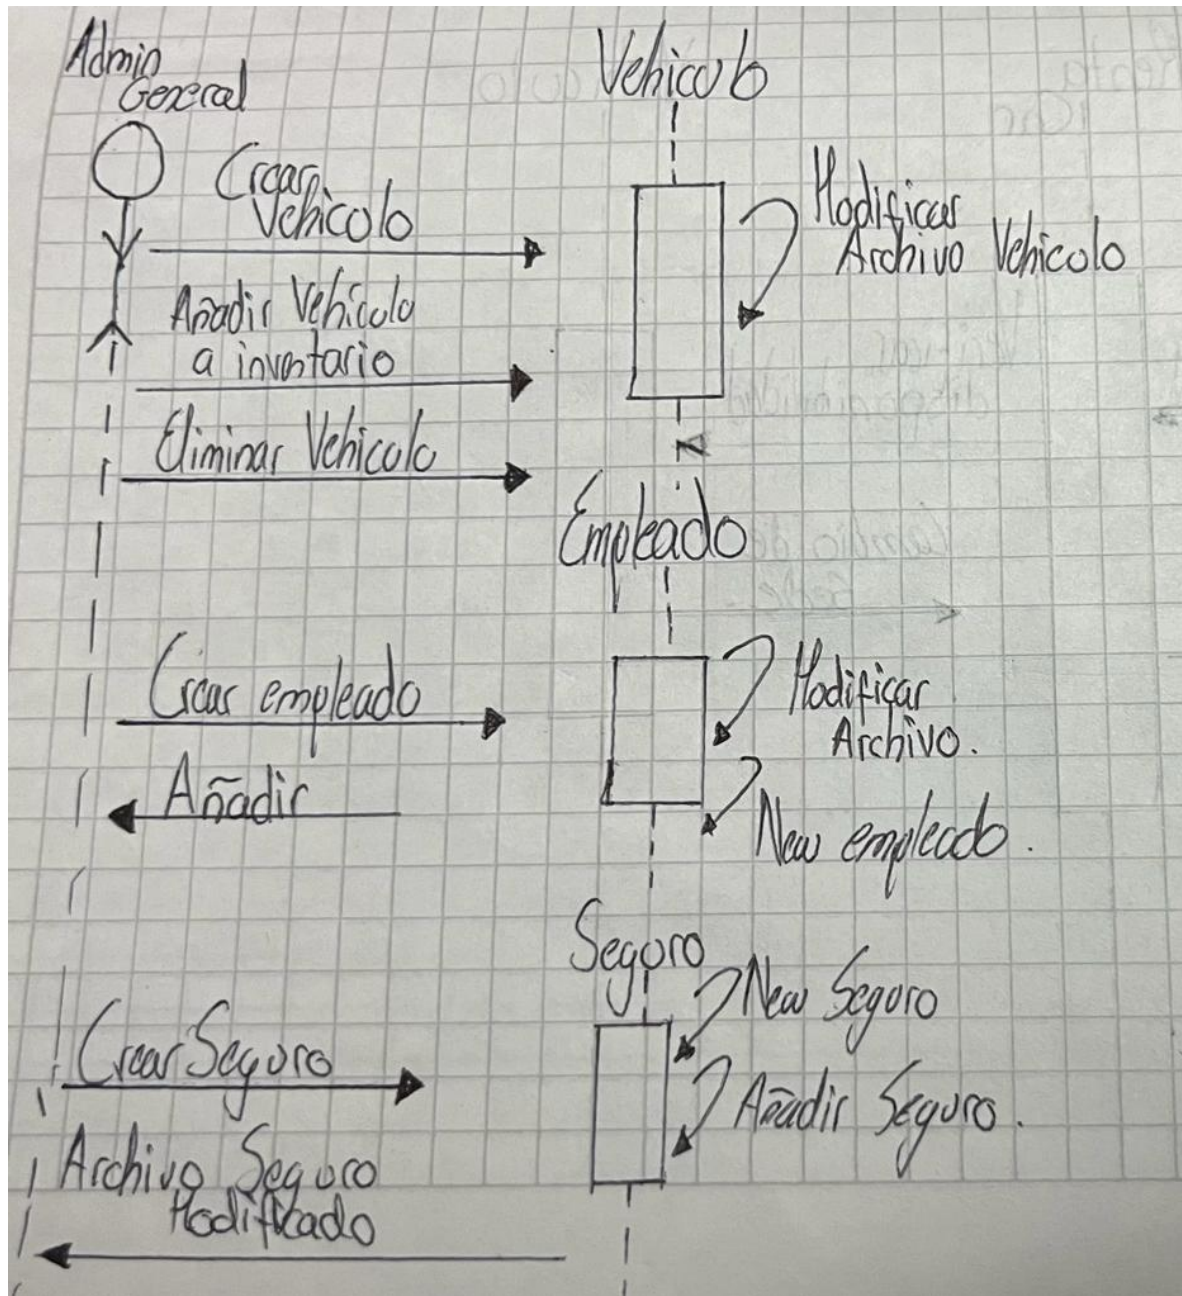 Admin
General
Vehiculo
Crear
Vehicolo
Modificar
Archivo Vehicolo
Añadir Vehiculo
a inventario
Eliminar Vehicolo
Empleado
Crear empleado
Modificar
Archivo.
Añadir
New empleado.
Seguro
New Seguro
Crear Seguro
Añadir Seguro.
Archivo Seguro
Modificado